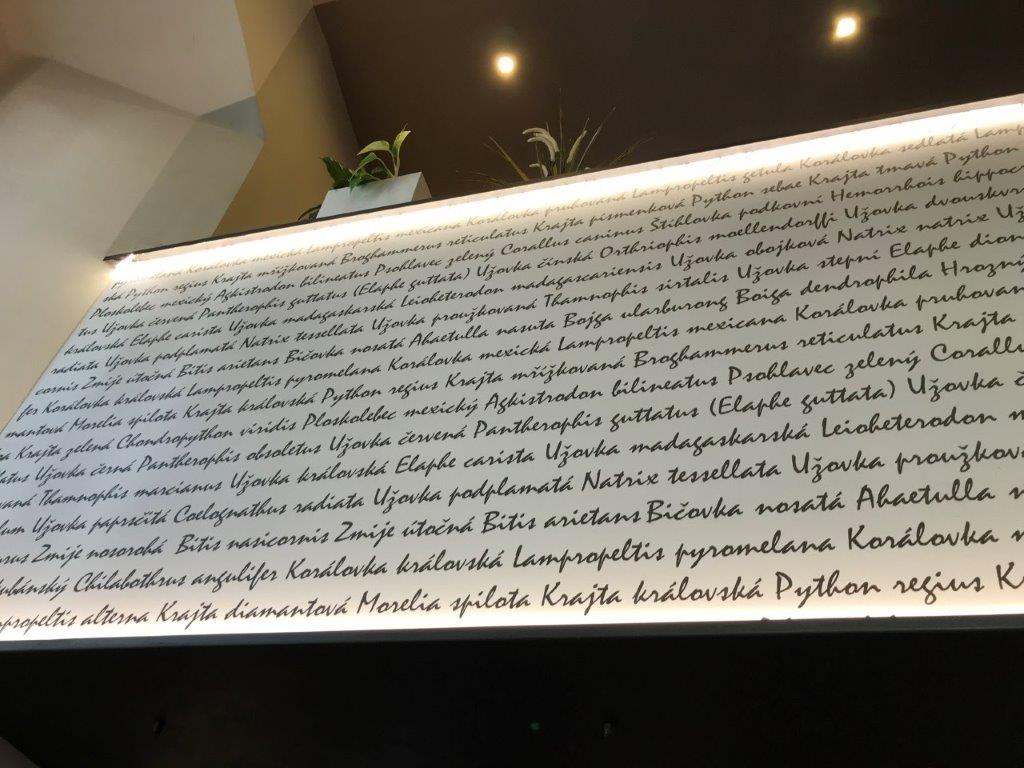 Koralovka mexická Lampropeltis mexicana Korálovka pruhovaná Lampropeltis getula Korálovka sedlatá
ská Python regius Krajta mřížkovaná Broghammerus reticulatus Krajta písmenková Python sebae Krajta tmavá Python
Ploskolebec mexický Agkistrodon bilineatus Psohlavec zelený Corallus caninus Štíhlovka podkovní Hemorrhois hippoc
tus Užovka červená Pantherophis guttatus (Elaphe guttata) Užovka čínská Orthriophis moellendorffi Užovka dvouskvr
královská Elaphe carista Užovka madagaskarská Leioheterodon madagascariensis Užovka obojková Natrix natrix Už
radiata Užovka podplamatá Natrix tessellata Užovka proužkovaná Thamnophis sirtalis Užovka stepní Elaphe dion
cornis Zmije útočná Bitis arietans Bičovka nosatá Ahaetulla nasuta Bojga ularburong Boiga dendrophila Hrozný
fer Korálovka královská Lampropeltis pyromelana Korálovka mexická Lampropeltis mexicana Korálovka pruhovan
mantová Morelia spilota Krajta královská Python regius Krajta mřížkovaná Broghammerus reticulatus Krajta
Krajta zelená Chondropython viridis Ploskolebec mexický Agkistrodon bilineatus Psohlavec zelený Corallu
latus Užovka černá Pantherophis obsoletus Užovka červená Pantherophis guttatus (Elaphe guttata) Užovka č
vaná Thamnophis marcianus Užovka královská Elaphe carista Užovka madagaskarská Leioheterodon m
lum Užovka paprsčitá Coelognathus radiata Užovka podplamatá Natrix tessellata Užovka proužkova
Zmije nosorohá Bitis nasicornis Zmije útočná Bitis arietans Bičovka nosatá Ahaetulla n
kubánský Chilabothrus angulifer Korálovka královská Lampropeltis pyromelana Korálovka m
mpropeltis alterna Krajta diamantová Morelia spilota Krajta královská Python regius K